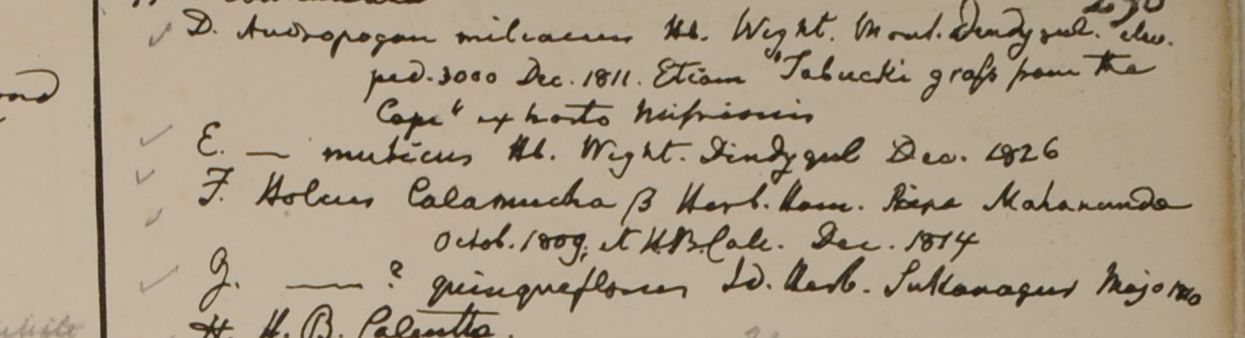 D. Andropogon miliaceus Hb. Wight. Mont. Dindygul. elev.
ped. 3000 Dec. 1811. Etiam "Tabucki grass from the
Cape" ex horto Missionis
E. — muticus Hb. Wight. Dindygul Dec. 1826
F. Holcus Calamucha β Herb. Ham. Ripa Mahanunda
Octob. 1809, et H.B. Calc. Dec. 1814
G. — ? quinqueflorus Id. Herb. Sukanagur Majo 1810
H. H. B. Calcutta.